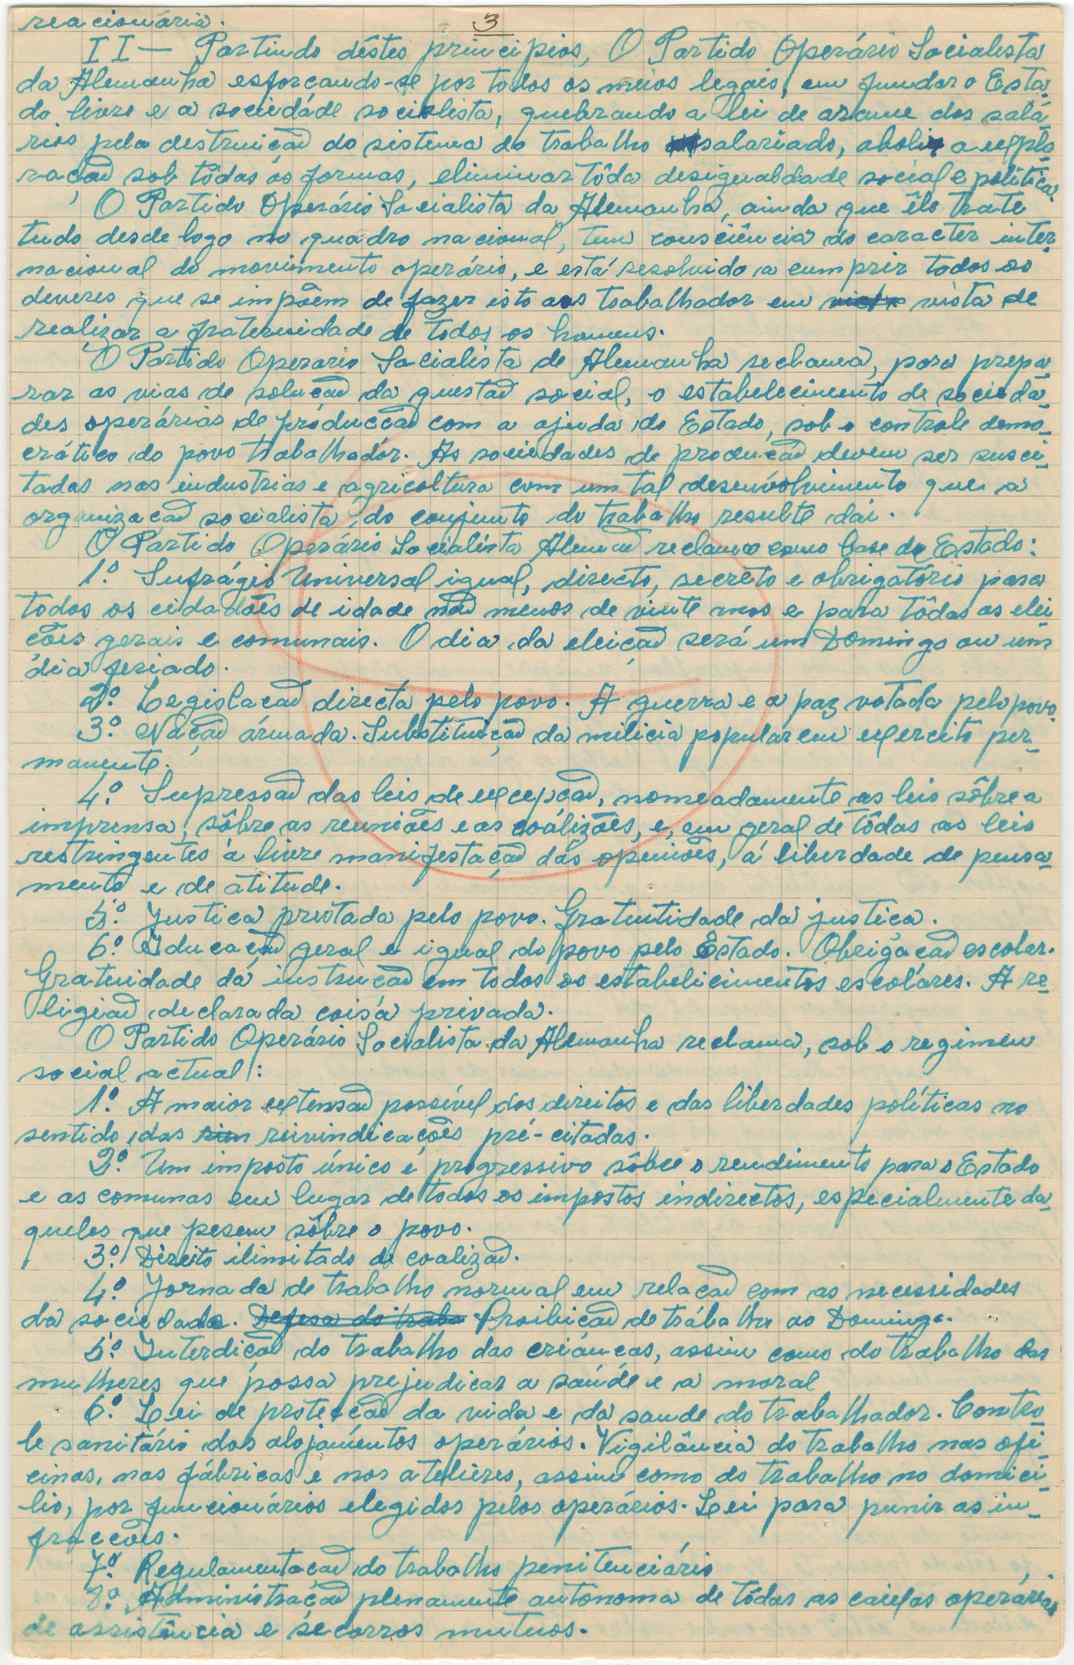 3
reacionária.
II — Partindo dêstes principios, O Partido Operário Socialista
da Alemanha esforçando-se por todos os meios legais, em fundar o Esta-
do livre e a sociedade socialista, quebrando a lei de arame dos salá-
rios pela destruição do sistema do trabalho salariado, abolir a explo-
ração sob tôdas as formas, eliminar tôda desigualdade social e política.
O Partido Operário Socialista da Alemanha, ainda que êle trate
tudo desde logo no quadro nacional, tem consciência do caracter inter-
nacional do movimento operário, e está resolvido a cumprir todos os
deveres que se impõem de fazer isto aos trabalhador em vista de
realizar a fraternidade de todos os homens.
O Partido Operario Socialista de Alemanha reclama, para prepa-
rar as vias de solução da questão social, o estabelecimento de socieda-
des operárias de producção com a ajuda do Estado, sob o controle demo-
crático do povo trabalhador. As sociedades de produção devem ser susci-
tadas nas industrias e agricoltura com um tal desenvolvimento que a
organização socialista do conjunto do trabalho resulte daí.
O Partido Operário Socialista Alemão reclama como base do Estado:
1º Sufrágio Universal igual, directo, secreto e obrigatório para
todos os cidadões de idade não menos de vinte anos e para tôdas as elei-
ções gerais e comunais. O dia da eleição será um Domingo ou um
dia feriado.
2º Legislação directa pelo povo. A guerra e a paz votada pelo povo.
3º Nação ármada. Substituição da milicia popular em exercito per-
manente.
4º Supressão das leis de excepção, nomeadamente as leis sôbre a
imprensa, sôbre as reuniões e as coálizões, e, em geral de tôdas as leis
restringentes á livre manifestação das openiões, á liberdade de pensa-
mento e de atitude.
5º Justica prestada pelo povo. Gratuitidade da justiça.
6º Educação geral e igual do povo pelo Estado. Obrigação escolar.
Gratuidade da instrução em todos os estabelicimentos escoláres. A re-
ligião declarada coisa privada.
O Partido Operário Socialista da Alemanha reclama, sob o regimen
social actual:
1º A maior extensão possível dos direitos e das liberdades políticas no
sentido das reivindicações pré-citadas.
2º Um imposto único e progressivo sôbre o rendimento para o Estado
e as comunas em lugar de todos os impostos indirectos, especialmente da-
queles que pesem sôbre o povo.
3º Direito ilimitado de coalizão.
4º Jornada de trabalho normal em relação com as necessidades
da sociedade. Defesa do traba Proibição de trabalho ao Domingo.
5º Interdição do trabalho das crianças, assim como do trabalho das
mulheres que possa prejudicar a saúde e a moral
6º Lei de proteção da vida e da saude do trabalhador. Contro-
le sanitário dos alojamentos operários. Vigilância do trabalho nas ofi-
cinas, nas fábricas e nos atelieres, assim como do trabalho no domicí-
lio, por funcionários elegidos pelos operários. Lei para punir as in-
fracções.
7º Regulamentação do trabalho penitenciário
8º Administração plenamente autonoma de tôdas as caixas operárias
de assistência e sécorros mutuos.